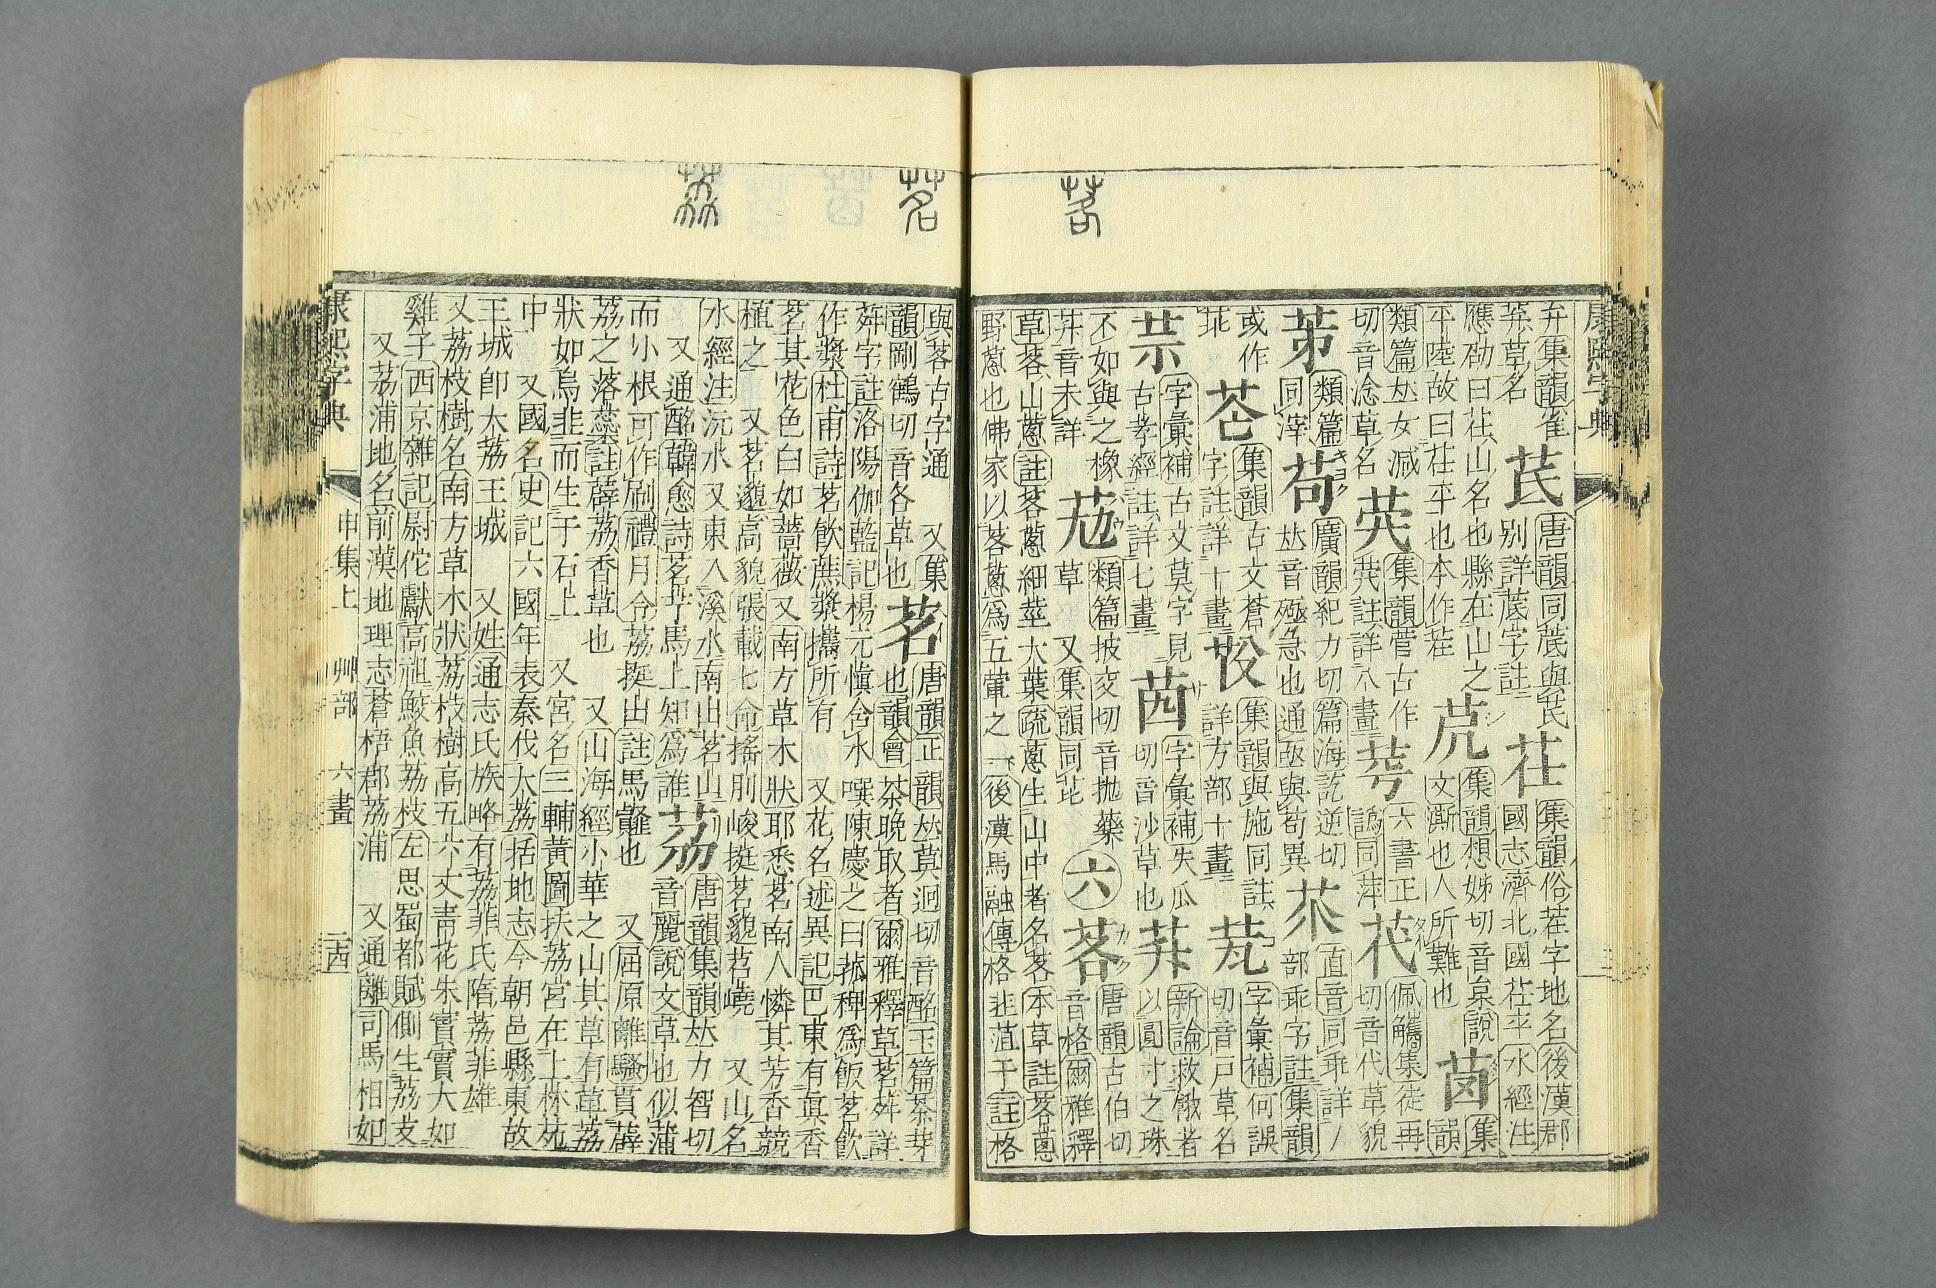 康熙字典
弁集韻雀 茋 唐韻同菧與芪 茌 集韻俗茬字地名後漢郡
草名 別詳菧字註 國志濟北國茌平水經注
應劭曰茌山名也縣在山之 集韻想姊切音枲說 茵 集
平陸故曰茌平也本作茬 文澌也人所難也 韻
類篇𠀤女減 集韻菅古作 佩觿集徒再
切音淰草名 註詳八畫 六書正譌同萍 切音代草貌
茀 類篇 苟 廣韻紀力切篇海訖逆切 直音同乖詳丿
同滓 𠀤音殛急也通亟與苟異 部乖字註集韻
或作 苍 集韻古文蒼 集韻與施同註 字彙補何誤
乖 字註詳十畫 詳方部十畫 切音戶草名
字彙補古文莫字見 茜 字彙補失瓜 新論救餓者
古孝經註詳七畫 切音沙草也 以圓寸之珠
不如與之橡 類篇披交切音抛藥 六 茖 唐韻古伯切
音未詳 草 又集韻同芘 音格爾雅釋
草茖山蔥註茖蔥細莖大葉疏蔥生山中者名茖本草註茖蔥
野蔥也佛家以茖蔥爲五葷之一後漢馬融傳格韭菹于註格
與茖古字通 又集 茗 唐韻正韻𠀤莫迥切音酩玉篇茶芽
韻剛鶴切音各草也 也韻會茶晚取者爾雅釋草茗荈詳
荈字註洛陽伽藍記楊元愼含水噀陳慶之曰菰稗爲飯茗飮
作漿杜甫詩茗飮蔗漿攜所有 又花名述異記巴東有眞香
茗其花色白如薔薇又南方草木狀耶悉茗南人憐其芳香競
植之 又茗邈高貌張載七命搖刖峻挺茗邈苕嶢 又山名
水經注沅水又東入溪水南出茗山 荔 唐韻集韻𠀤力智切
又通酩韓愈詩茗艼馬上知爲誰 音麗說文草也似蒲
而小根可作刷禮月令荔挺出註馬薤也 又屈原離騷貫薜
荔之落蘂註薜荔香草也 又山海經小華之山其草有萆荔
狀如烏韭而生于石上 又宮名三輔黃圖扶荔宮在上林苑
中 又國名史記六國年表秦伐大荔括地志今朝邑縣東故
王城卽大荔王城 又姓通志氏族略有荔菲氏隋荔菲雄
又荔枝樹名南方草木狀荔枝樹高五六丈靑花朱實實大如
雞子西京雜記尉佗獻高祖鮫魚荔枝左思蜀都賦側生荔支
又荔浦地名前漢地理志蒼梧郡荔浦 又通離司馬相如
康熙字典 申集上 艸部 六畫